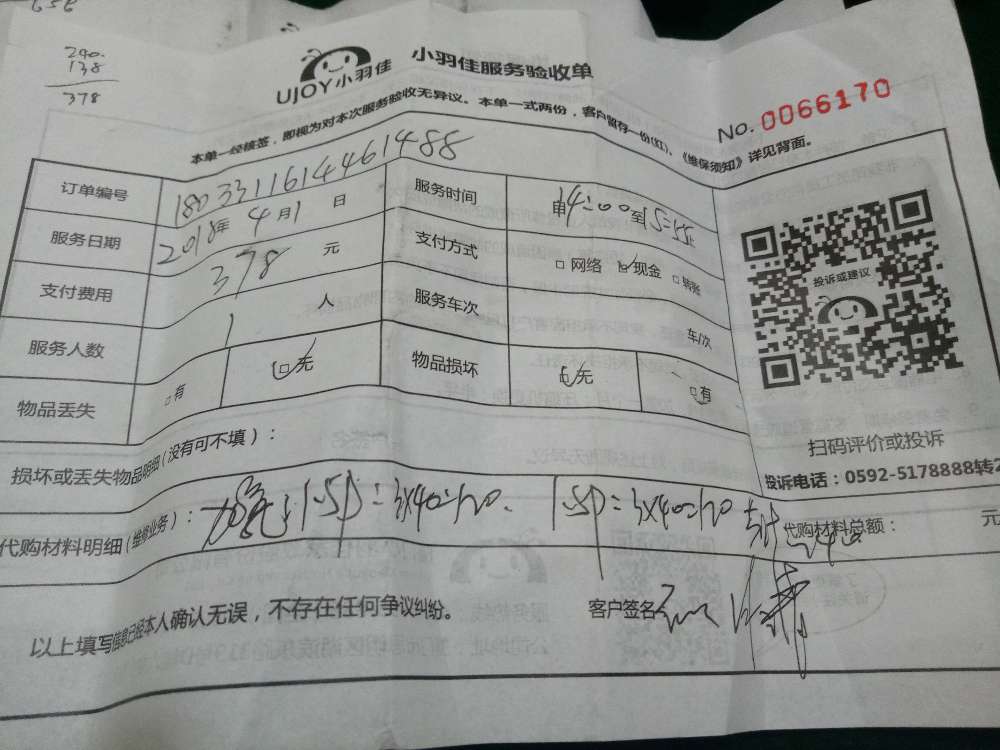 240.
138
378
UJOY小羽佳 小羽佳服务验收单
No. 0066170
本单一经核签，即视为对本次服务验收无异议。本单一式两份，客户留存一份(红)。《维保须知》详见背面。
订单编号 1803311614461488 服务时间 由14:00至15:55止
服务日期 2018年4月1日 支付方式 □网络 ☑现金 □转账
支付费用 378 元 服务车次 车/次
服务人数 1 人 物品损坏 ☑无 □有
物品丢失 □有 ☑无
投诉或建议
扫码评价或投诉
投诉电话：0592-5178888转2
损坏或丢失物品明细(没有可不填)：
代购材料明细(维修业务)： 1.5P=3×40=120. 1.5P=3×40=120 代购材料总额： 240 元
以上填写信息已经本人确认无误，不存在任何争议纠纷。 客户签名